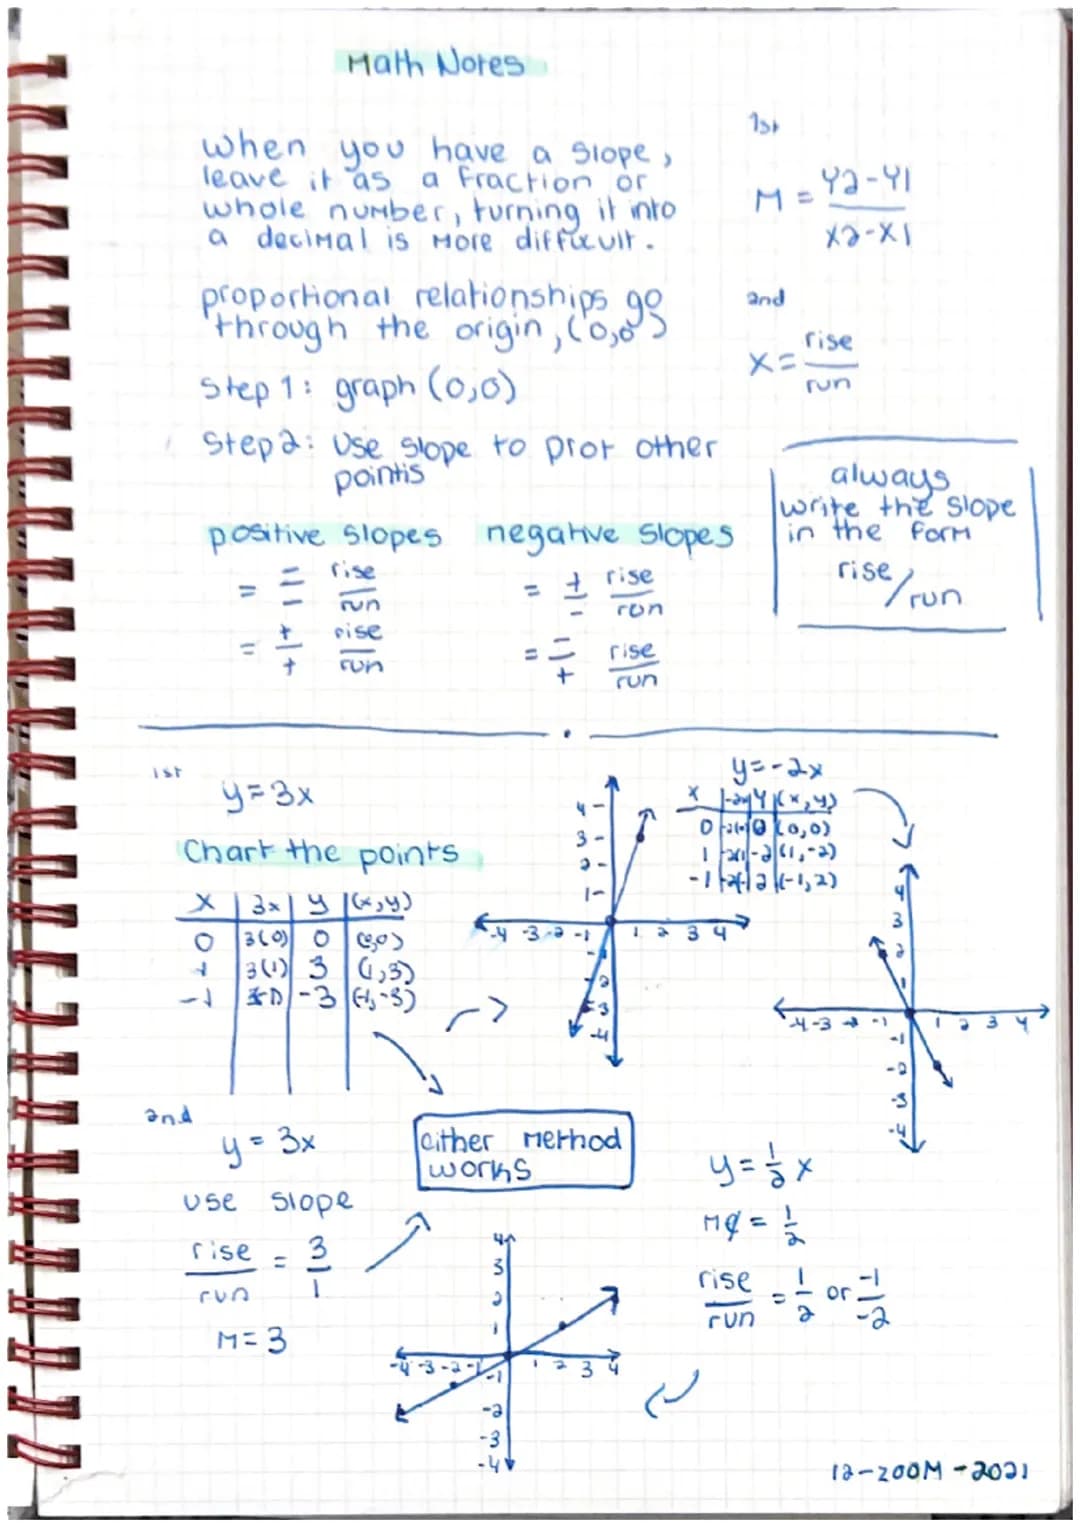 Math Notes
when you have a slope,
leave it as a fraction or
whole number, turning it into
a decimal is more difficult.
proportional relationships go
through the origin, (0,0)
Step 1: graph (0,0)
Step 2: Use slope to plot other
points
1st
M = y2-y1
x2-x1
2nd
x = rise
run
always
write the slope
in the form
rise/run
positive slopes
= - rise
- run
= + rise
+ run
negative slopes
= + rise
- run
= - rise
+ run
1st
y=3x
Chart the points
x 3x y (x,y)
0 3(0) 0 (0,0)
1 3(1) 3 (1,3)
-1 -3 (-1,-3)
4
3
2
1
-4 -3 -2 -1 1 2 3 4
-2
-3
-4
y=-2x
x -2x y (x,y)
0 0 (0,0)
1 -2 (1,-2)
-1 2 (-1,2)
4
3
2
1
-4 -3 -1 1 2 3 4
-1
-2
-3
-4
2nd
y = 3x
use slope
rise = 3
run 1
M = 3
either method
works
4
3
2
1
-4 -3 -2 -1 1 2 3 4
-1
-2
-3
-4
y = 1/2 x
M = 1/2
rise = 1 or -1
run 2 -2
12-200M-2021